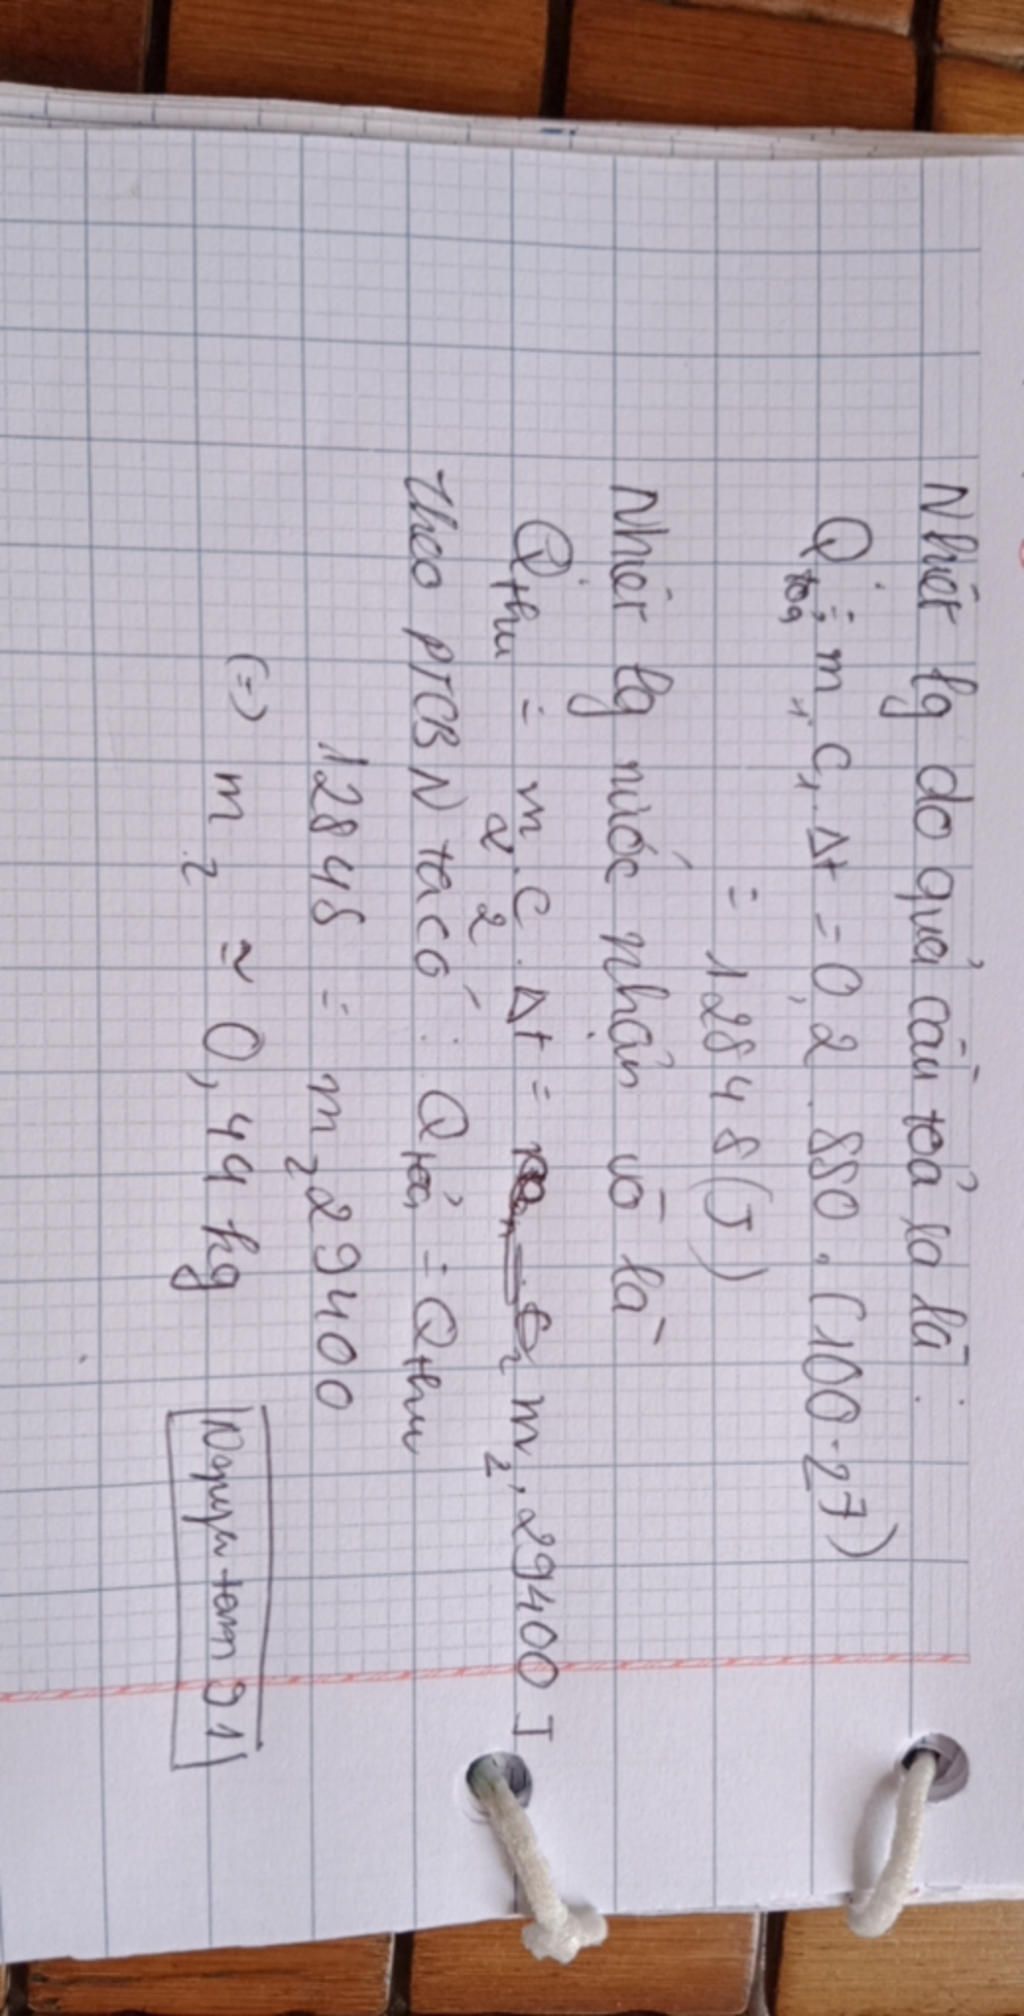 Nhiệt lg do quả cầu toả ra là :
Qtoả = m1.c1.Δt = 0,2.880.(100-27)
= 12848(J)
Nhiệt lg nước nhận vô là
Qthu = m2.c2.Δt = m2.29400 J
theo PTCBN ta có : Qtoả = Qthu
12848 = m2 29400
(=) m2 ≈ 0,44 kg
Nguyentom91